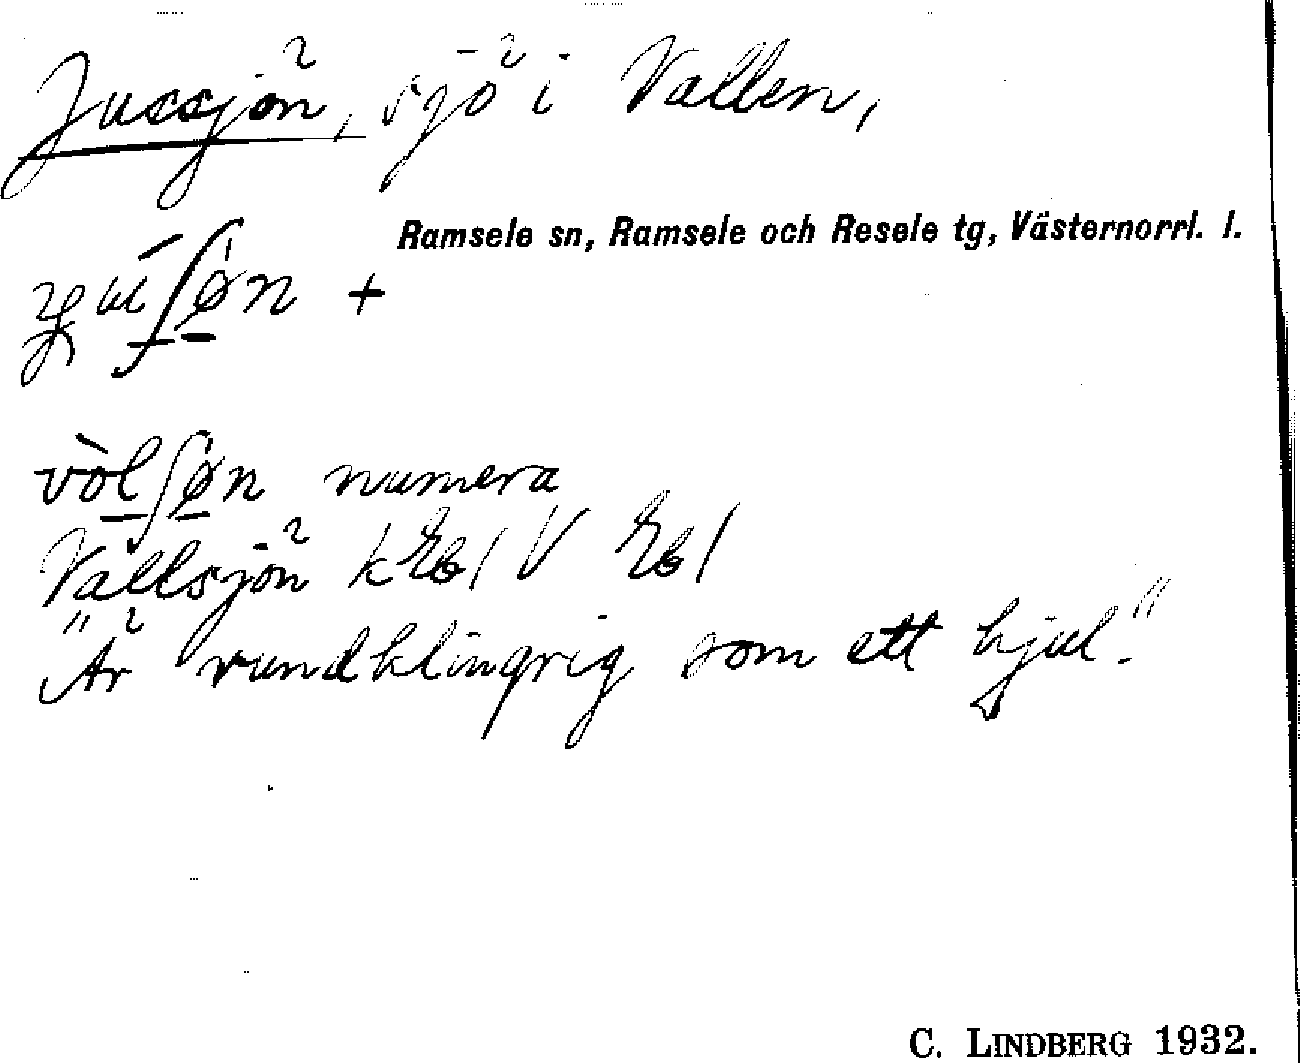 Jussjön, sjö i Vallen,
Ramsele sn, Ramsele och Resele tg, Västernorrl. l.
numera
Vallsjön
"Är rundklingrig som ett hjul."
C. LINDBERG 1932.